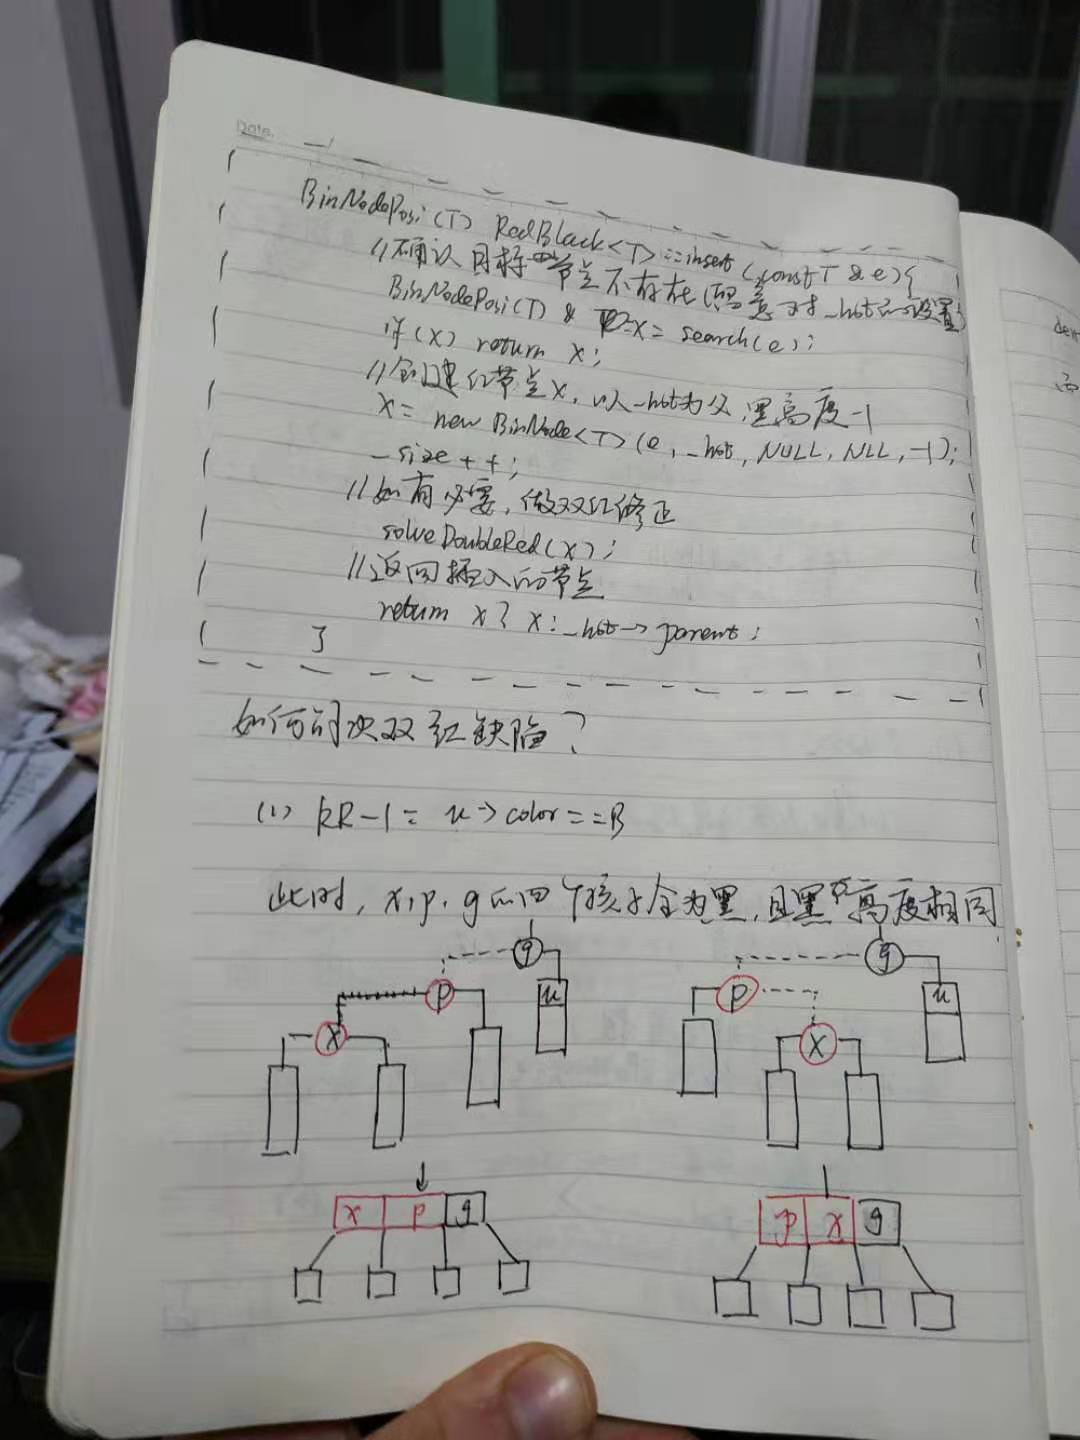 Date.
BinNodePosi(T) RedBlack<T>::insert(const T & e){
//确认目标节点不存在(留意对_hot的设置)
BinNodePosi(T) & x = search(e);
if (x) return x;
//创建红节点x,以_hot为父,黑高度-1
x = new BinNode<T>(e, _hot, NULL, NLL, -1);
_size++;
//如有必要,做双红修正
solveDoubleRed(x);
//返回插入的节点
return x ? x : _hot->parent;
}
如何解决双红缺陷?
(1) RR-1: u->color==B
此时,x,p,g的四个孩子全为黑,且黑高度相同
g g
p u p u
x x
x p g p x g